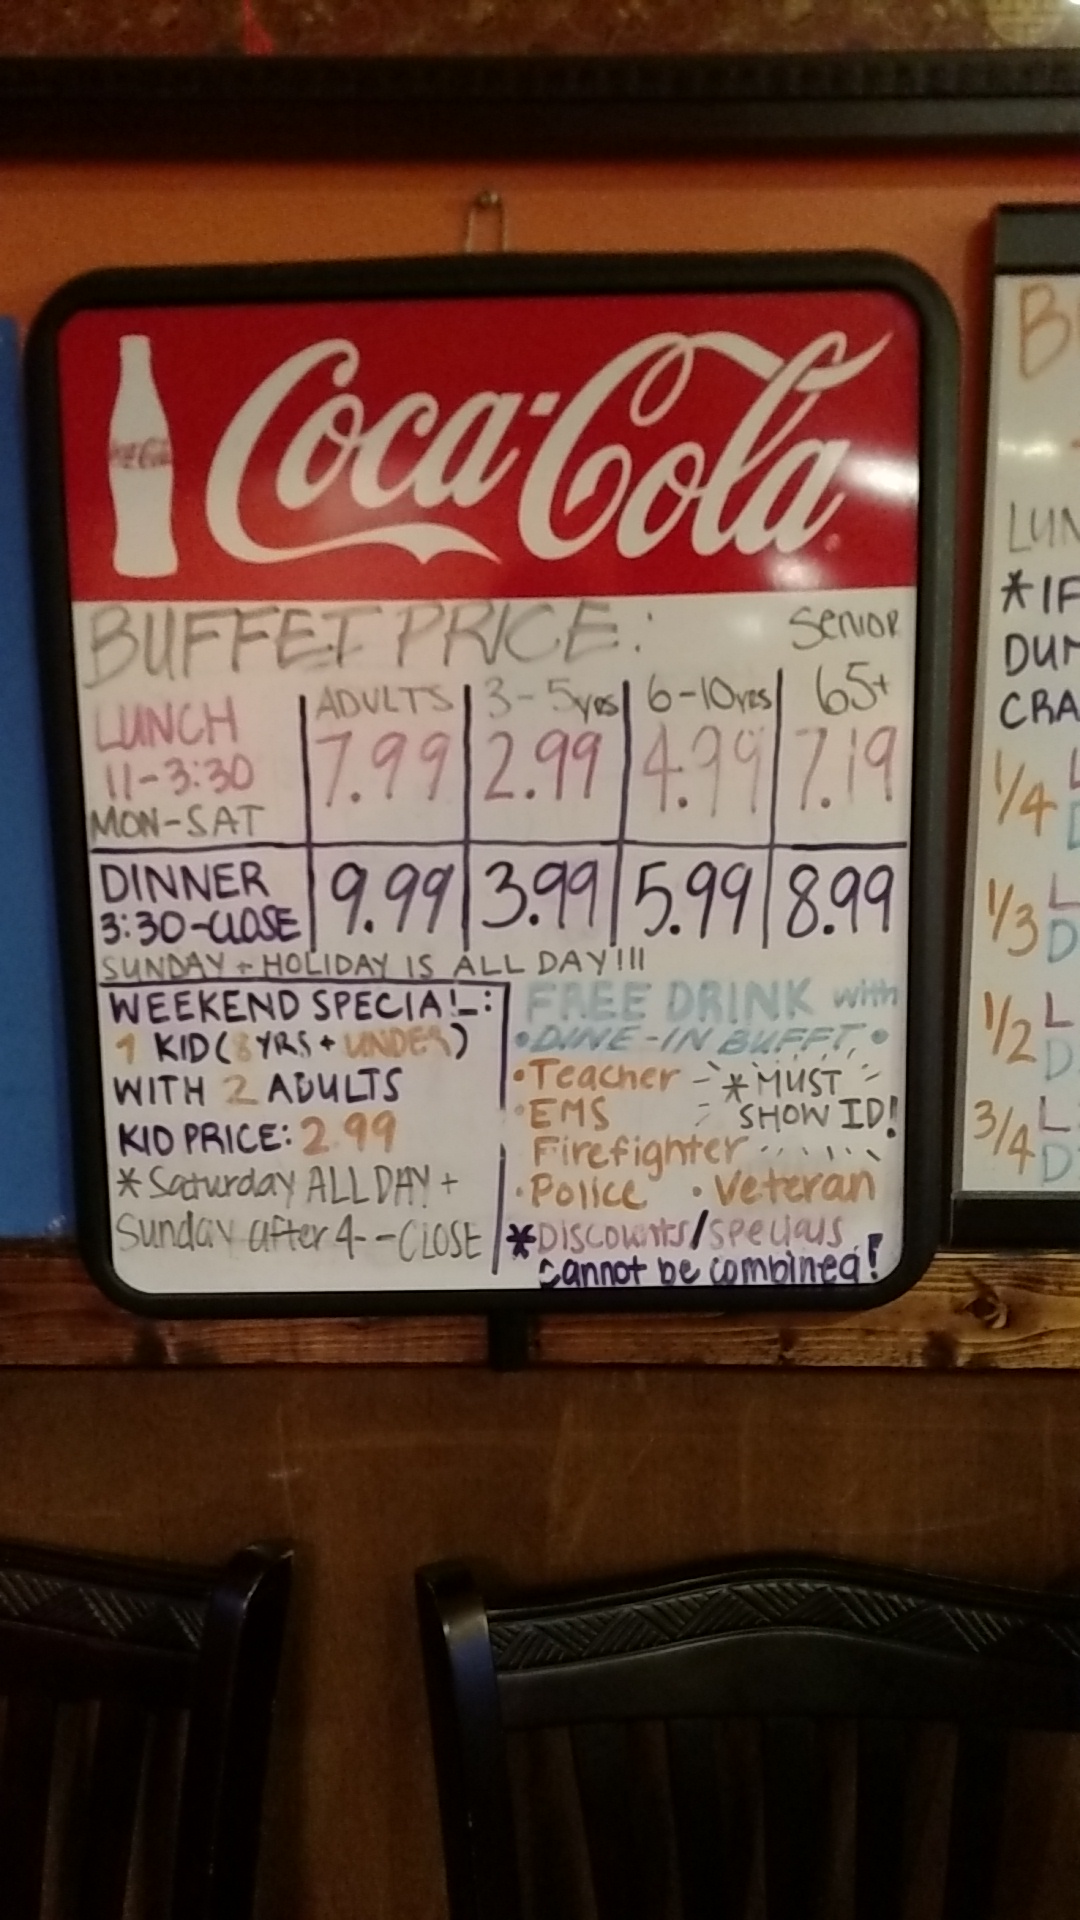 Coca-Cola
Coca-Cola
BUFFET PRICE:
SENIOR
65+
ADULTS 3-5yrs 6-10yrs
LUNCH
11-3:30
MON-SAT
7.99 2.99 4.99 7.19
DINNER
3:30-CLOSE
9.99 3.99 5.99 8.99
SUNDAY + HOLIDAY IS ALL DAY!!!
WEEKEND SPECIAL:
1 KID (8 YRS + UNDER)
WITH 2 ADULTS
KID PRICE: 2.99
*Saturday ALL DAY +
Sunday after 4--CLOSE
FREE DRINK with
•DINE-IN BUFFT•
•Teacher
•EMS
Firefighter
•Police •Veteran
*MUST
SHOW ID!
*DISCOUNTS/specials
cannot be combined!
B
LUN
*IF
DUM
CRA
1/4 L
D
1/3 L
D
1/2 L
D
3/4 L
D